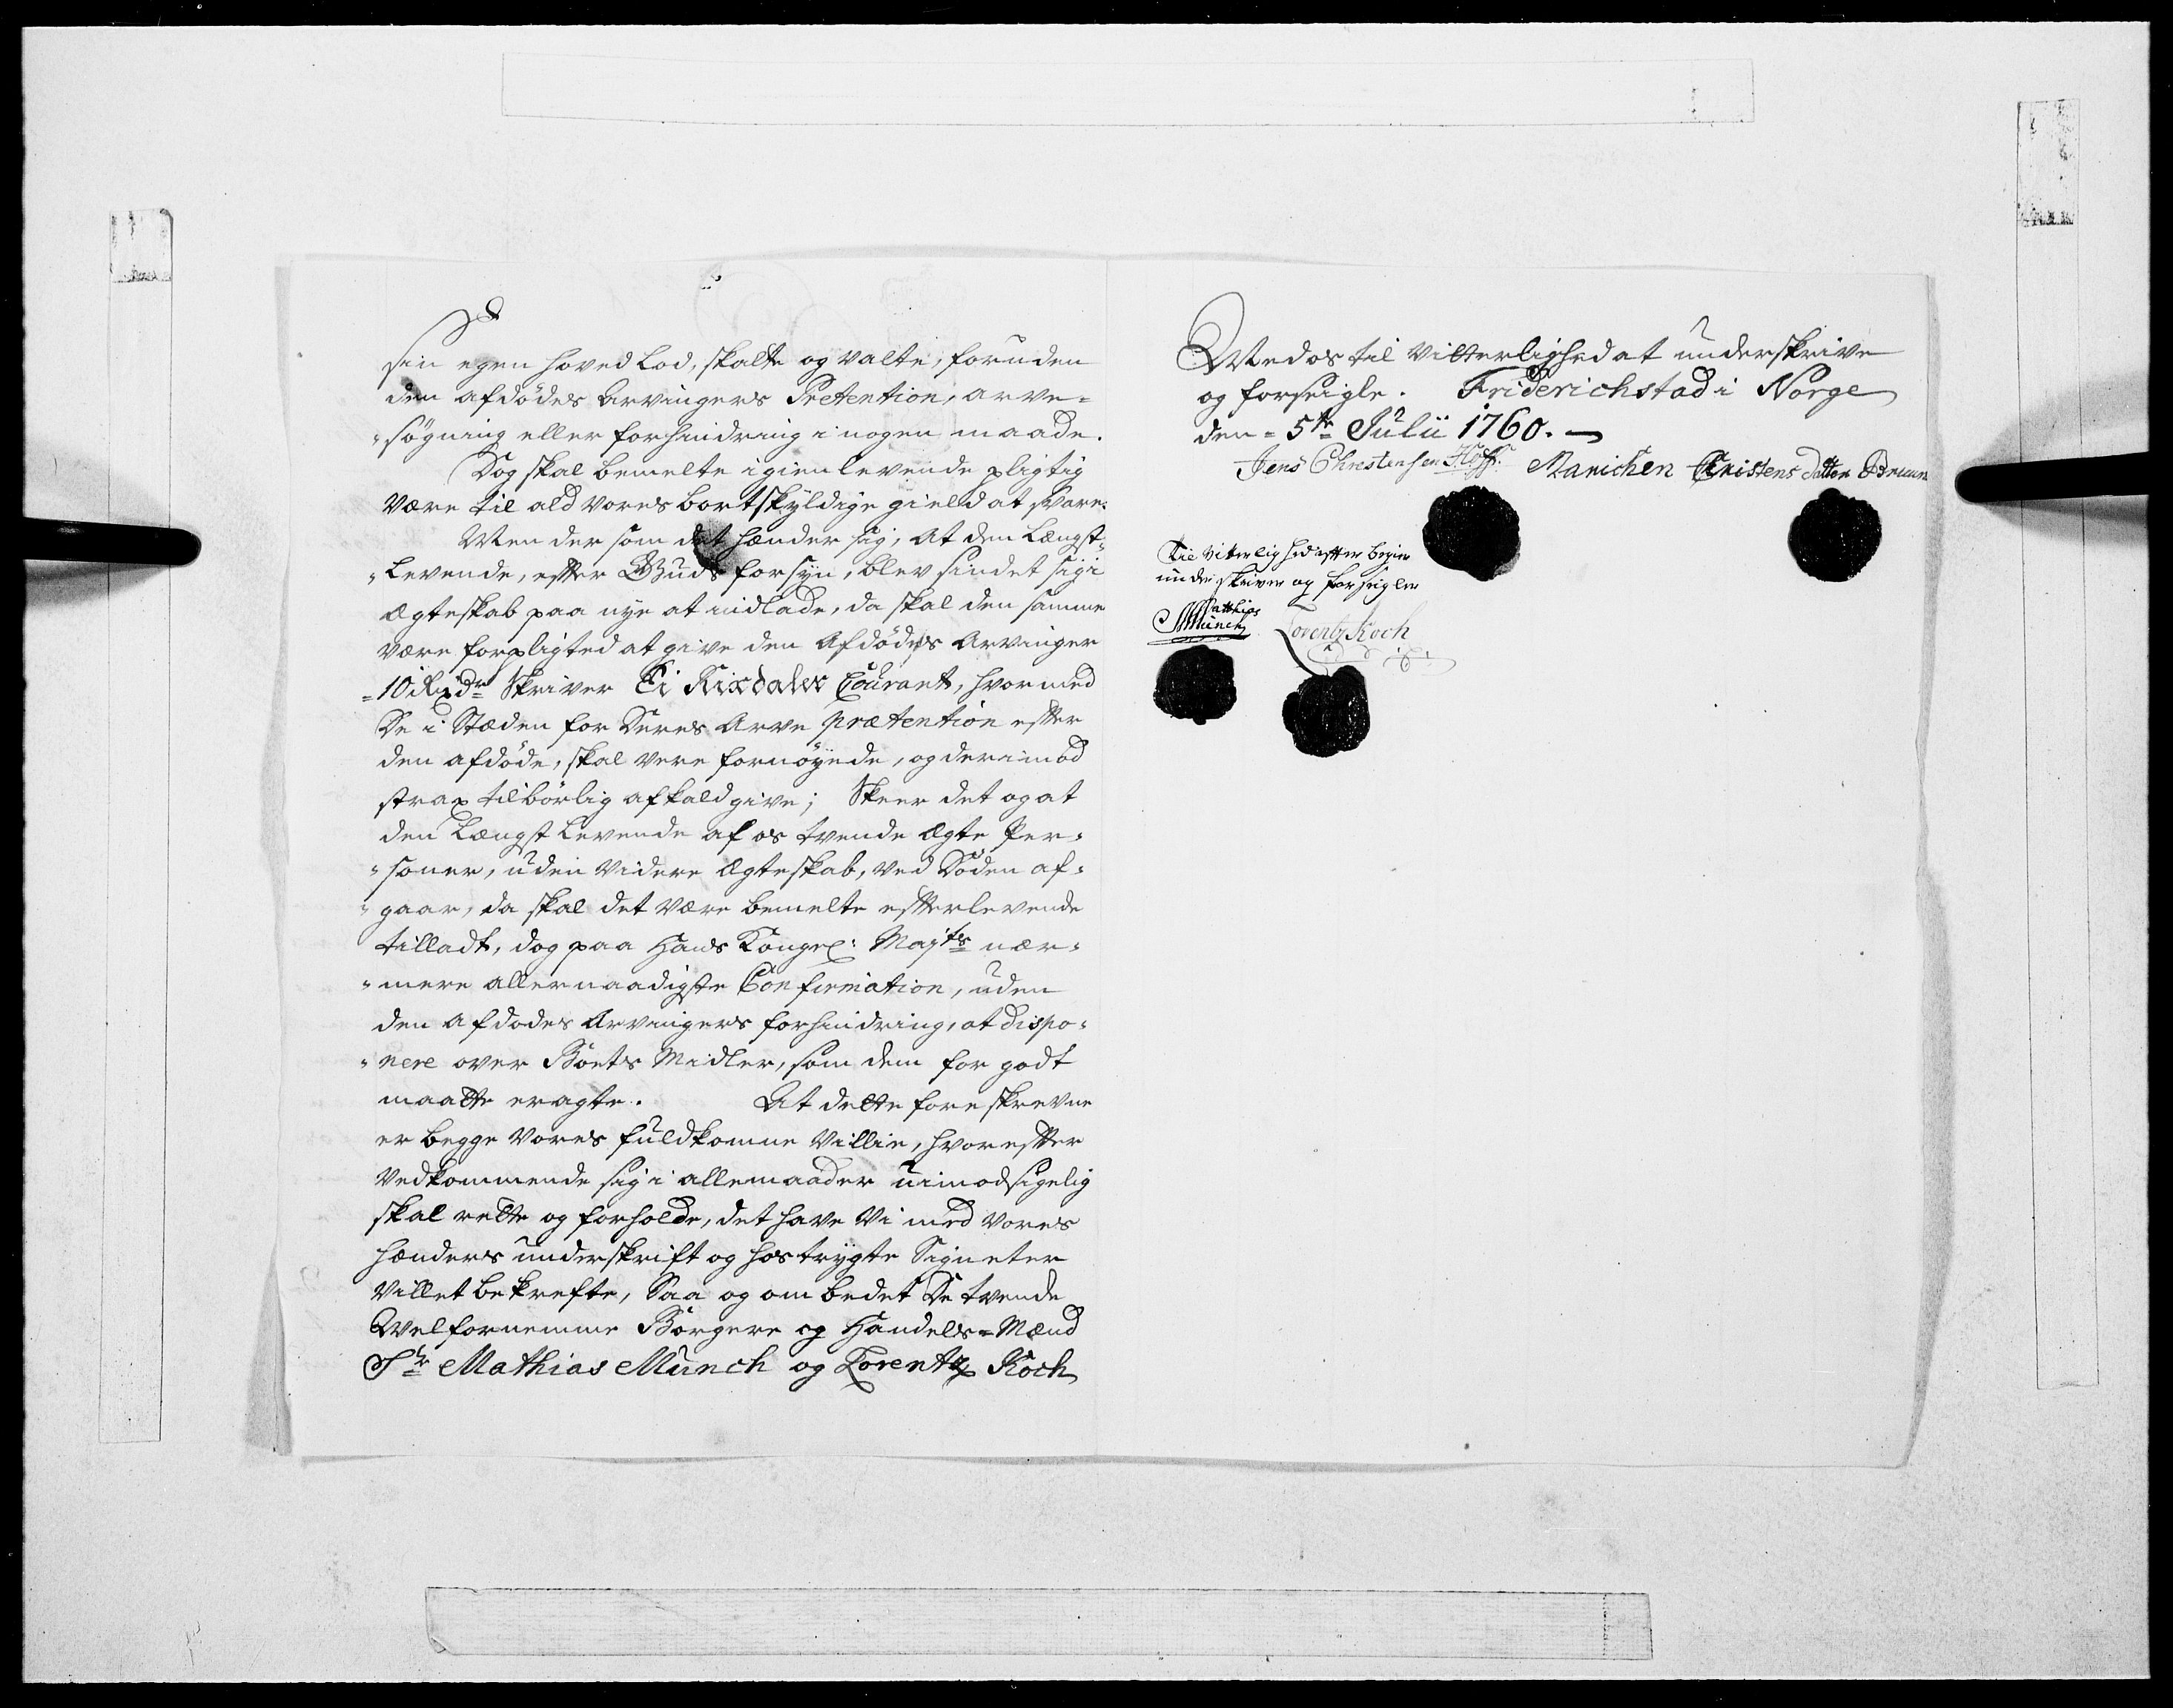 sin egen hoved Lod, skalte og valte, foruden
den afdödes Arvingers Pretention, arve=
=søgning eller forhindring i nogen maade.
Dog skal bemelte igienlevende pligtig
være til ald vores bortskyldige gield at svare.
Men der som det hænder sig, At den Længst=
=Levende, efter Guds forsyn, blev sindet sig i
Ægteskab paa nye at indlade, da skal den samme
være forpligted at give den Afdödes Arvinger
=10 Rixdr Skriver Ti Rixdaler Courant, hvormed
De i Stæden for Deres Arve prætention efter
den afdöde, skal være fornöyede, og derimod
strax tilbörlig afkald give; Skeer det og at
den Længst Levende af os tvende Ægte Per=
=soner, uden videre Ægteskab, ved Döden af=
=gaar, da skal det være bemelte efterlevende
tilladt, dog paa Hans Kongel: Majts nær=
=mere allernaadigste Confirmation, uden
den afdödes Arvingers forhindring, at dispo=
=nere over Boets Midler, som dem for godt
maatte eragte. At dette foreskrevne
er begge Vores fuldkomne Villie, hvorefter
Vedkommende sig i allemaader uimodsigelig
skal rette og forholde, det have Vi med vores
hænders underskrift og hostrygte Signeter
villet bekrefte, Saa og ombedet De tvende
Velfornemme Borgere og Handels=Mænd
Sr Mathias Münch og Lorentz Koch
Med os til Vitterlighed at underskrive
og forseigle. Friderichstad i Norge
den = 5te Julii 1760.
Jens Christensen Hoff. Marichen Christens Datter Bruun
Til Viterlighed efter begier
underskriver og forseigler
Matthias
Münch Lorentz Koch